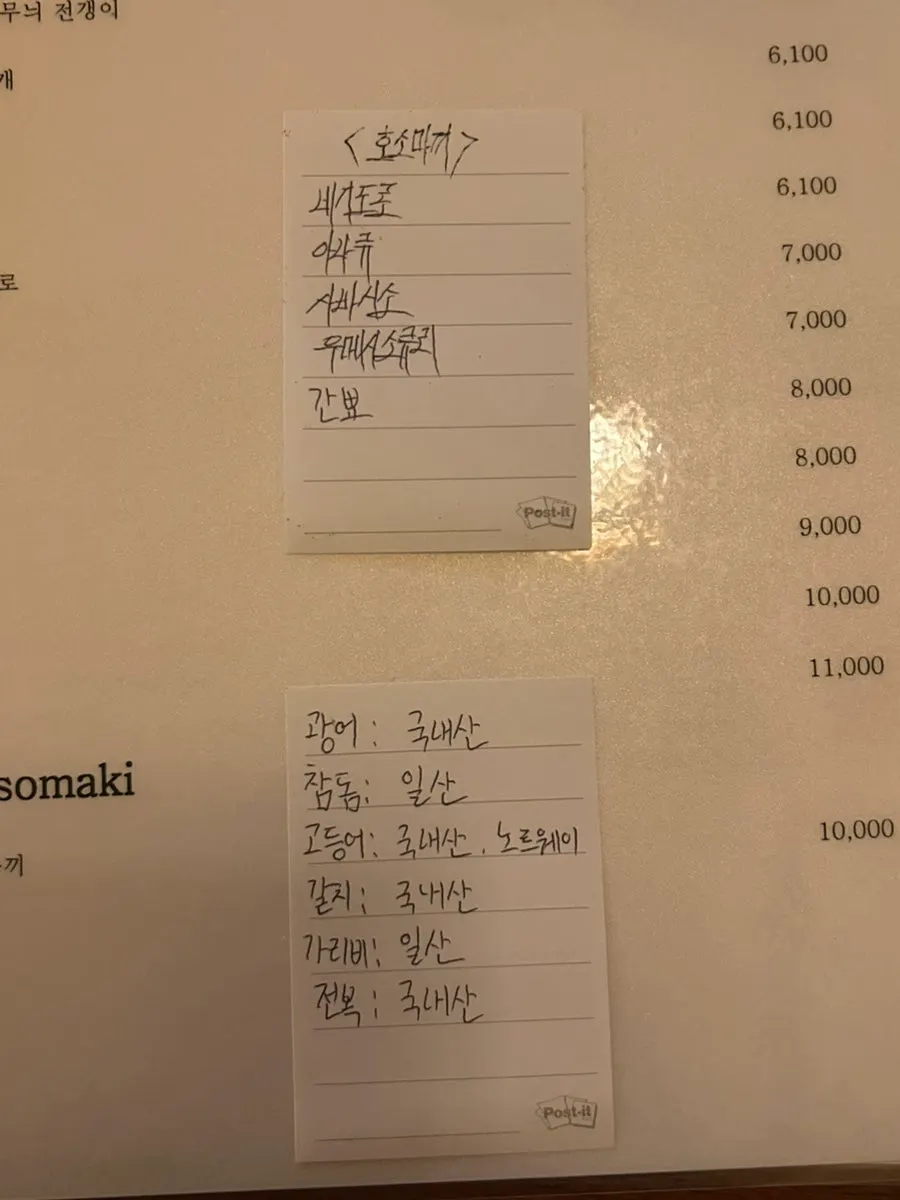 무늬 전갱이
6,100
개
6,100
6,100
7,000
로
7,000
8,000
8,000
9,000
10,000
11,000
<호소마끼>
네기도로
이자큐
사바시소
우메시소큐리
간뾰
Post-it
somaki
끼
10,000
광어: 국내산
참돔: 일산
고등어: 국내산, 노르웨이
갈치: 국내산
가리비: 일산
전복: 국내산
Post-it